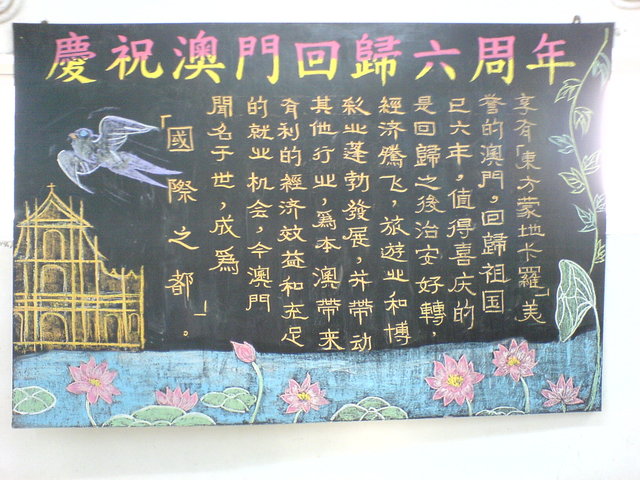 慶祝澳門回歸六周年
享有「東方蒙地卡羅」美
誉的澳門，回歸祖国
已六年，值得喜庆的
是回歸之後治安好轉，
經济騰飞，旅遊业和博
彩业蓬勃發展，并带动
其他行业，爲本澳帶来
有利的經济效益和充足
的就业机会，令澳門
聞名于世，成爲
「國際之都」。